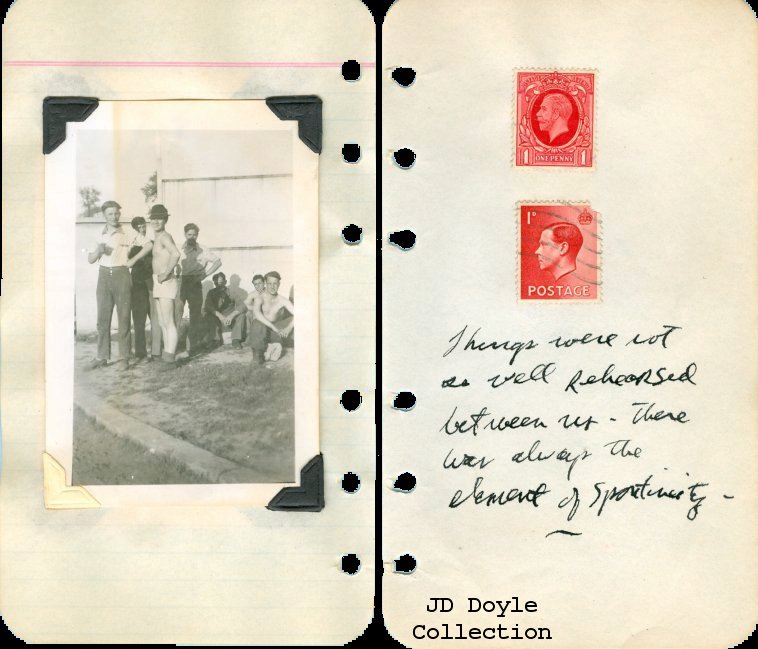 1 ONE PENNY 1
1D
POSTAGE
Things were not
as well rehearsed
between us - there
was always the
element of spontinuity -
JD Doyle
Collection